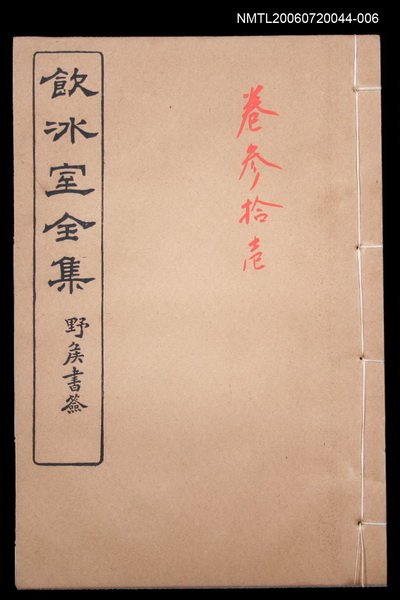 NMTL20060720044-006
卷參拾壱
飲冰室全集
野矦書簽